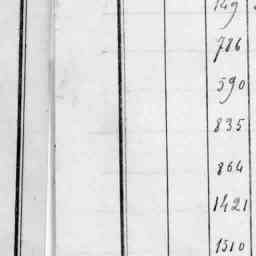 149
786
590
835
864
1421
1510